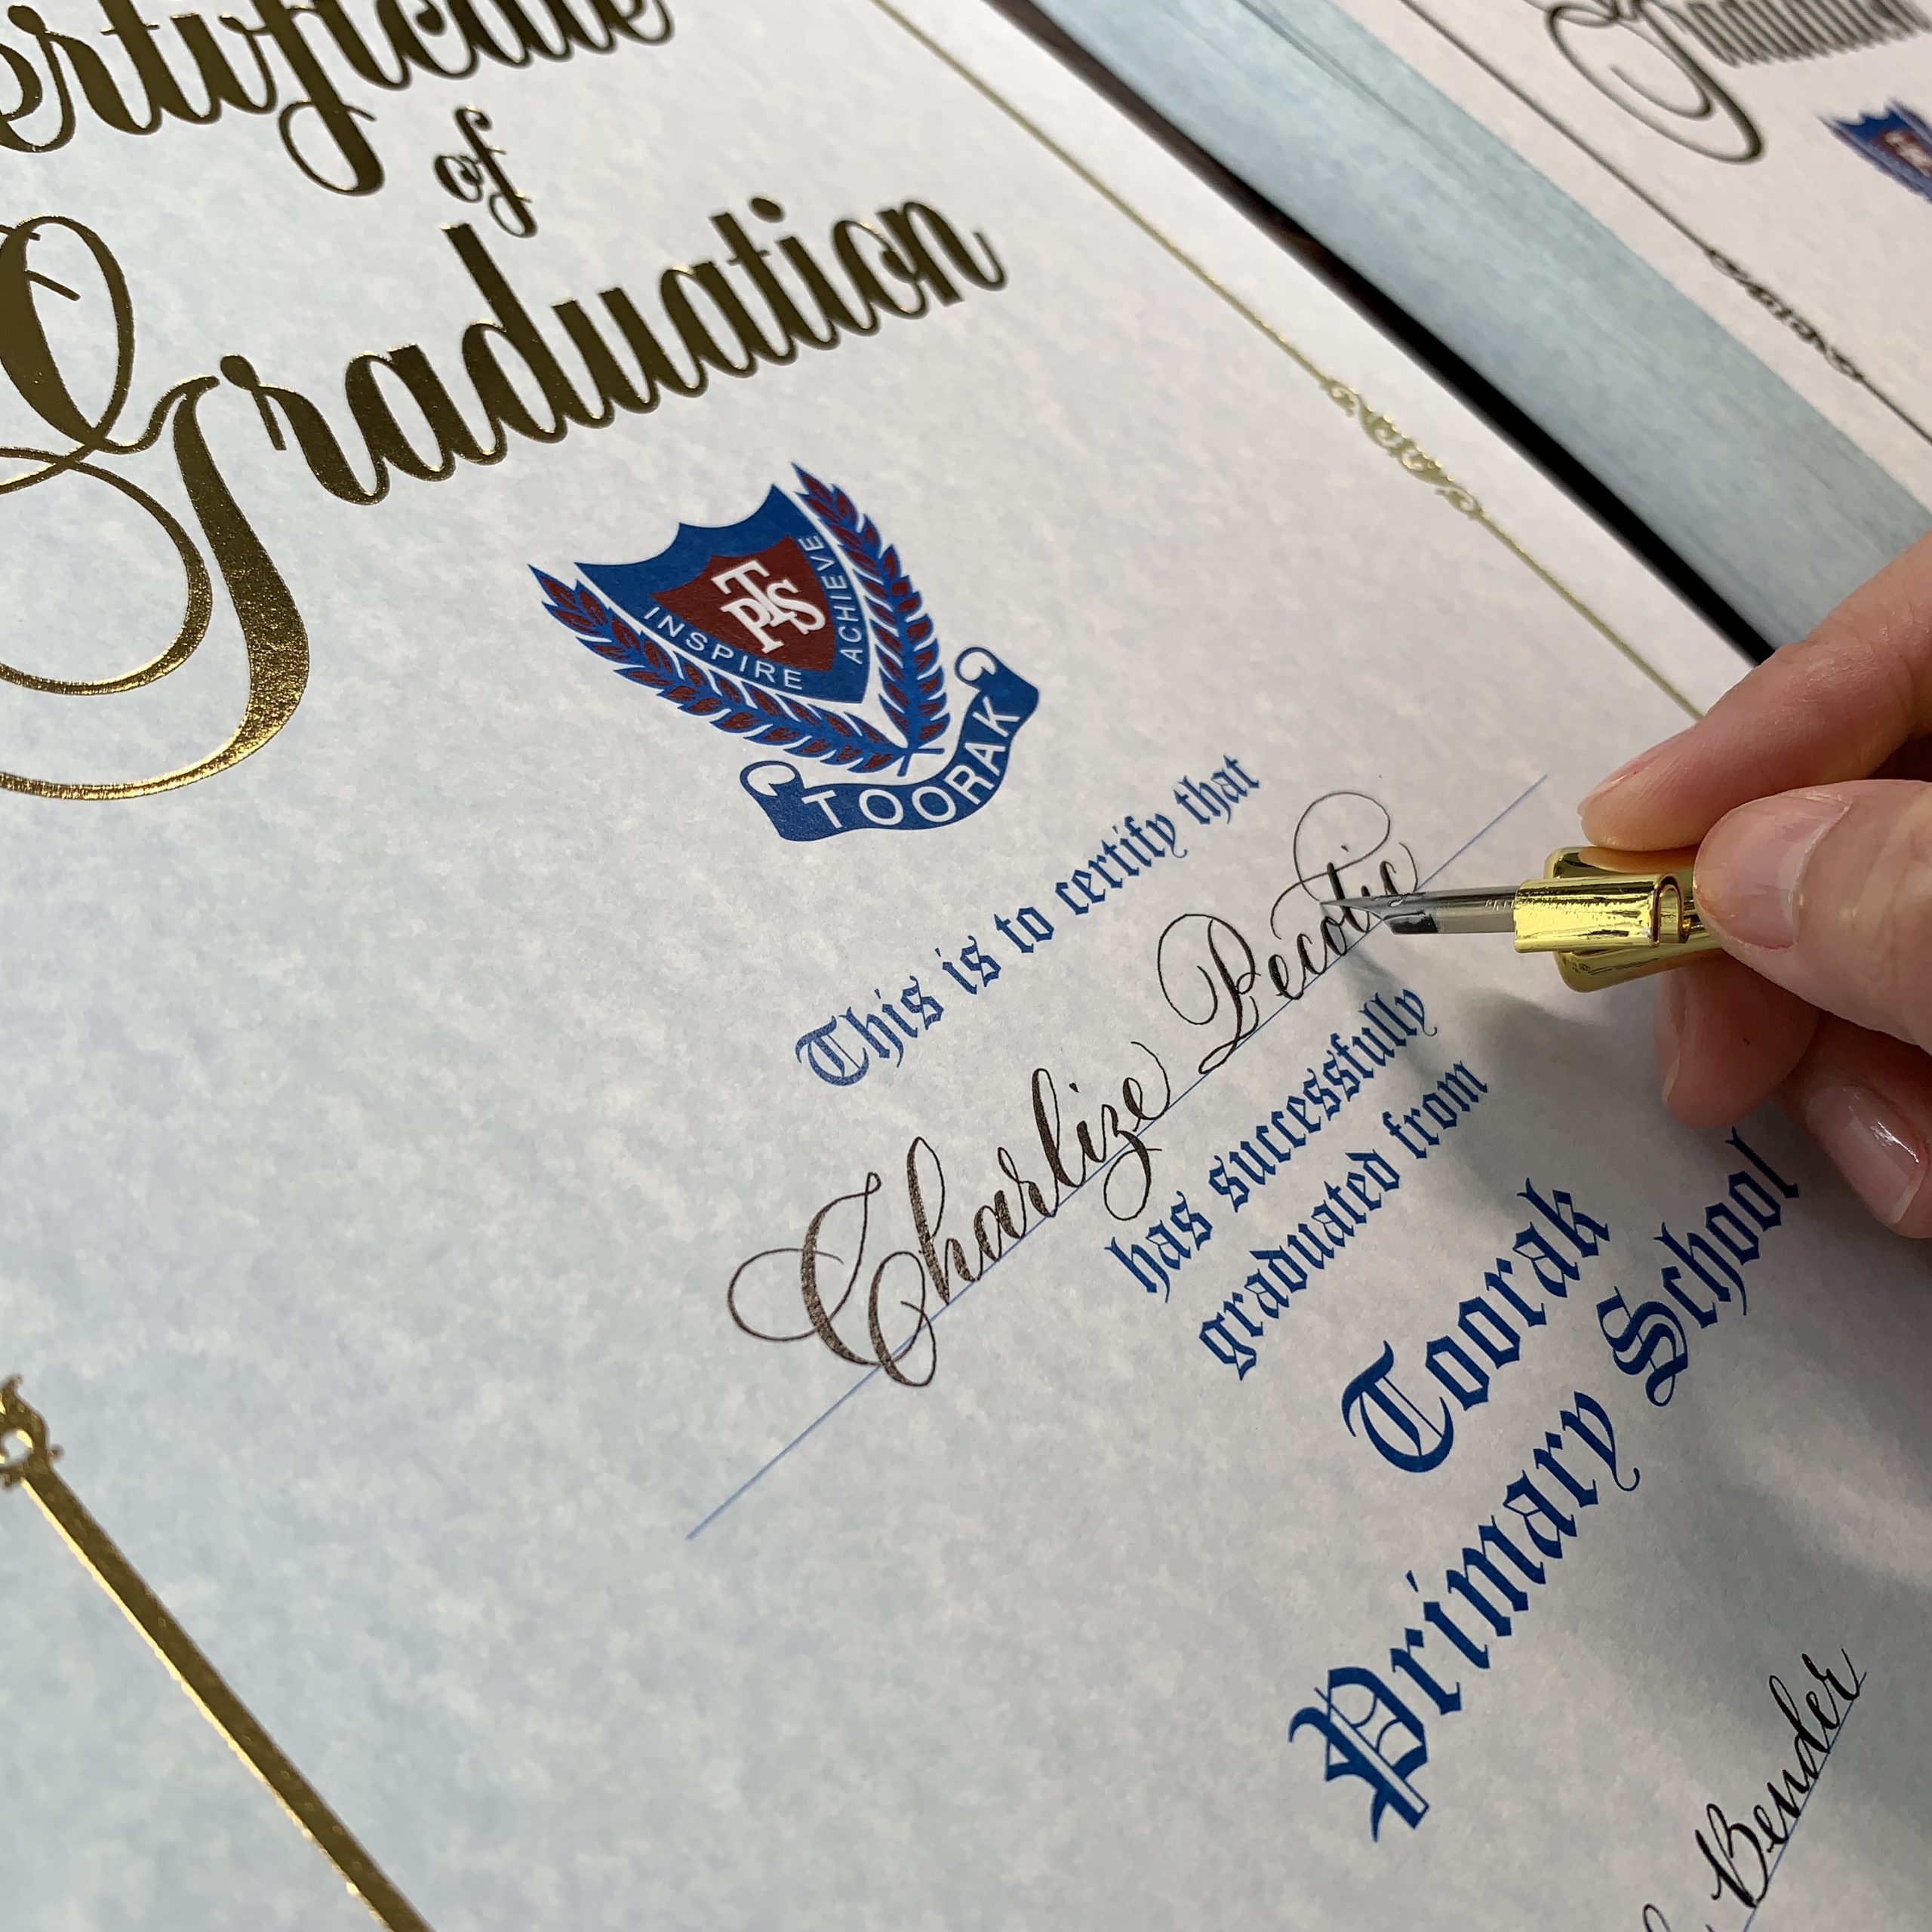 ertificate
of
Graduation
PTS
INSPIRE ACHIEVE
TOORAK
This is to certify that
Charlize Pecotic
has successfully
graduated from
Toorak
Primary School
Bender